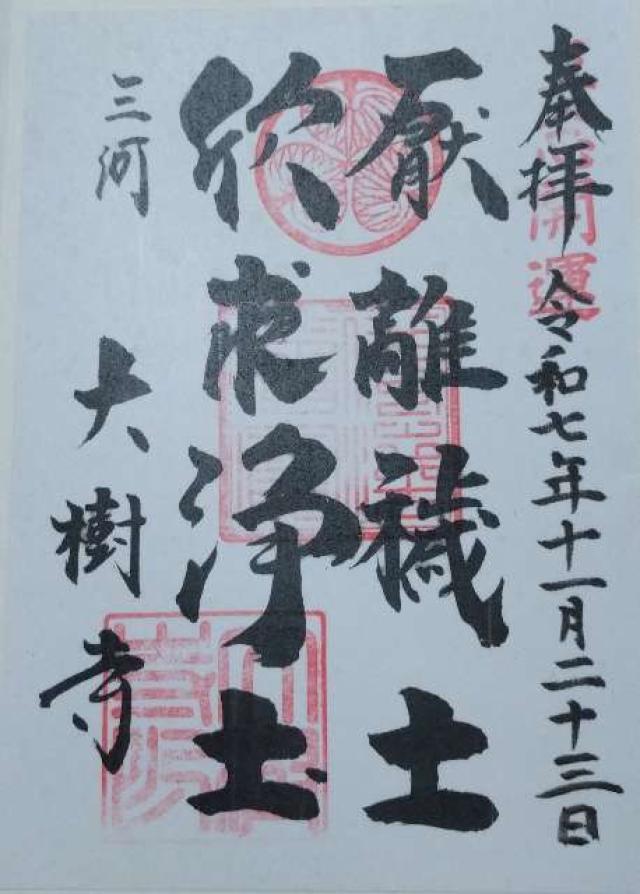 奉拝 令和七年十一月二十三日
開運
厭離穢土
欣求浄土
三河
大樹寺